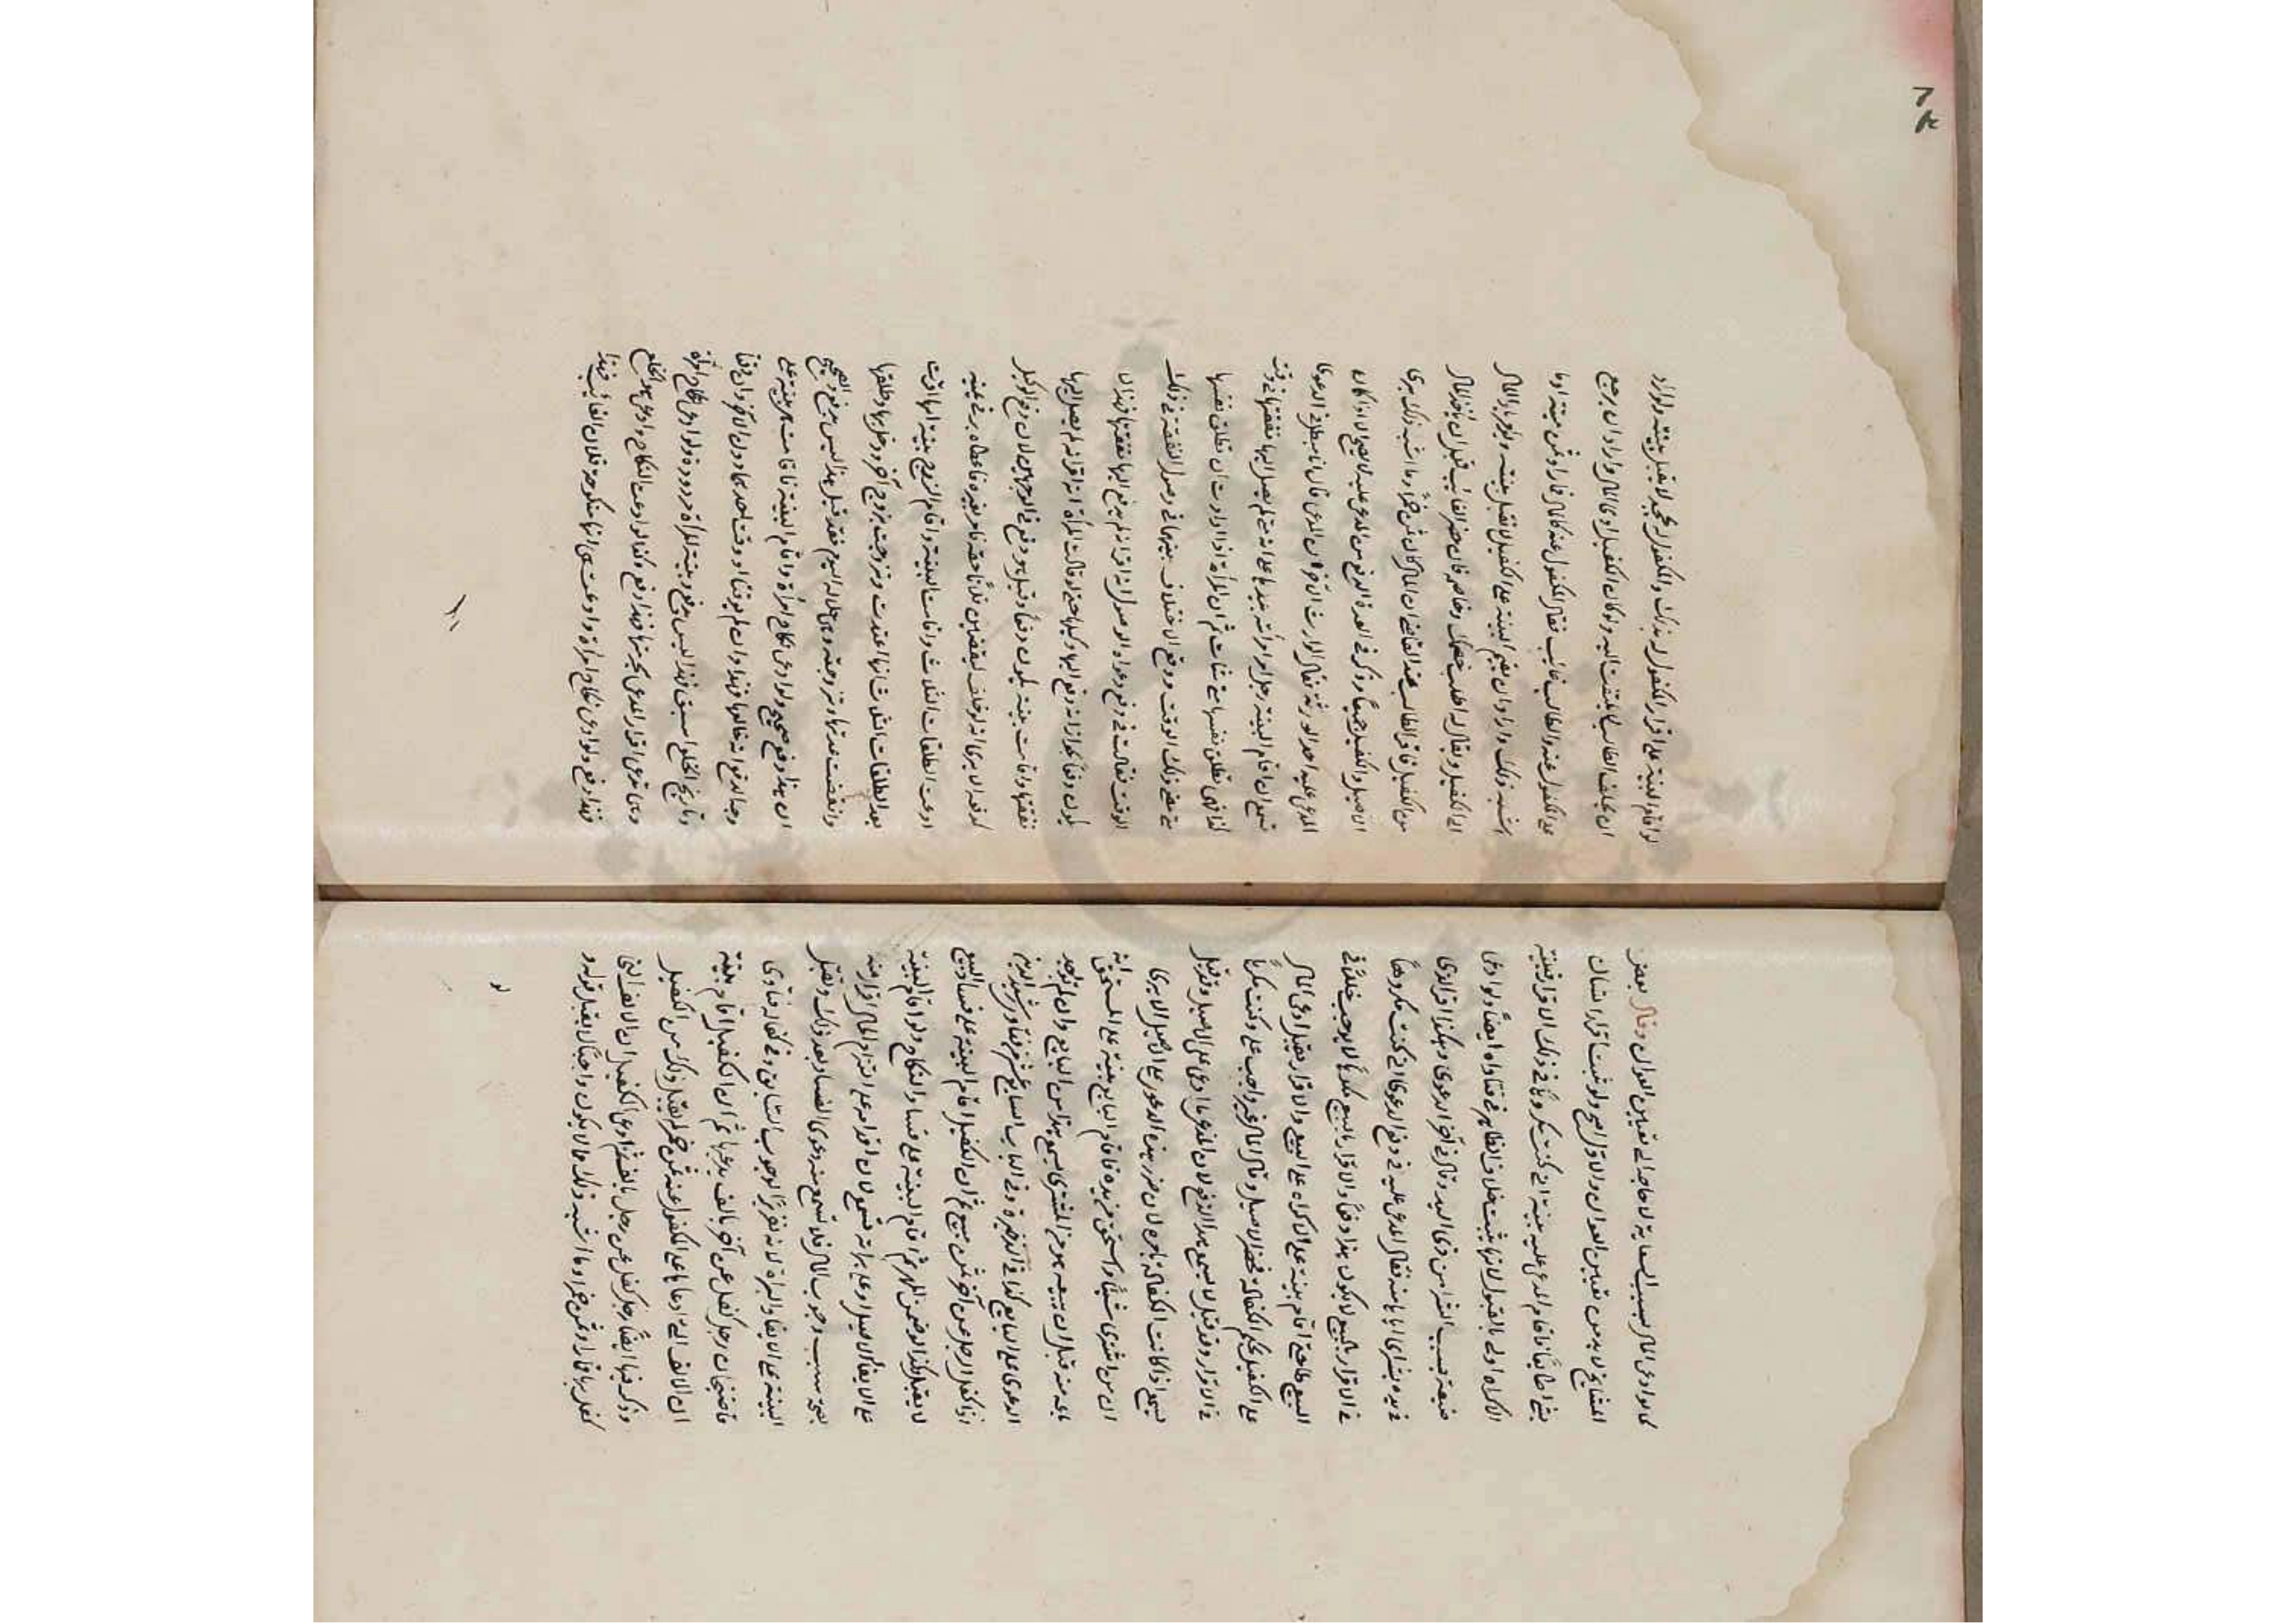 كما لو ادعى المال بسبب السعاية لا حاجة الى تعيين العوان وقال بعض
المشايخ لا بد من تعيين العوان والاول اصح ولو ثبت اقرار انسان
بشئ طائعا فاقام المدعى عليه بينة اني كنت مكرها في ذلك الاقرار فبينة
الاكراه اولى بالقبول لانها تثبت خلاف الظاهر في فتاواه ايضا ولو ادعى
ضيعة بسبب الشراء من ذي اليد وقال في آخر الدعوى وهكذا اقر الذي
في يده بشراي اياها منه فقال المدعى عليه في دفع الدعوى اني كنت مكروها
في الاقرار بالبيع لا يكون هذا دفعا والاقرار بالبيع مكرها لا يوجب خللا في
البيع طائعا حتى اقام بينة على الاكراه على البيع والاقرار يقبل ادعى المال
على الكفيل بحكم الكفالة فحضر الاصيل وقال المال غير واجب على وكنت مكرها
في الاقرار وقد قيل لا يسمع هذا الدفع لان المدعي ما ادعى على الاصيل وقد قيل
يسمع اذا كانت الكفالة بامره لان ضرر هذه الدعوى على الاصيل الا يرى
ان من اشترى شيئا واستحق من يده فاقام البايع بينة على المستحق انه
باعه منه قبل ان يبيعه هو من المشترى يسمع هذا من البايع وان لم توجه
الدعوى على البايع كذا في الذخيرة وفي الباب السابع عشر من فتاوى رشيد الدين
اذا كفل الرجل عن آخر ثمن مبيع ثم ان الكفيل اقام البينة على فساد البيع
لا يقبل وكذا لو ضمن المهر ثم اقام البينة على فساد النكاح ولو اقام البينة
على الايفاء الاصيل او على براته تسمع لان اقدامه على التزام المال اقرار منه
بصحة سبب وجوب المال فلا تسمع منه دعوى الفساد بعد ذلك وتقبل
البينة على الايفاء والبراة لانه تقرير الوجوب السابق وفي كفالة فتاوى
قاضيخان رجل كفل عن آخر بالف يدعيها ثم ان الكفيل اقام بينة
ان الالف التي ادعاها على المكفول عنه ثمن خمر لم يقبل ذلك من الكفيل
وذكر فيها ايضا رجل كفل عن رجل بالف ثم ادعى الكفيل ان الالف التي
كفل بها قمار او ثمن خمر او ما اشبه ذلك مما لا يكون واجبا لا يقبل قوله و
لو
لو اقام البينة على اقرار المكفول له بذلك والمكفول له يجحد لا تقبل بينته ولو اراد
ان يحلف الطالب لا يلتفت اليه ولو كان الكفيل ادى المال واراد ان يرجع
على المكفول عنه والطالب غائب فقال المكفول عنه كان المال قمارا او ثمن ميتة او ما
اشبه ذلك واراد ان يقيم البينة على الكفيل لا تقبل بينته ويؤمر باداء المال
الى الكفيل ويقال له اطلب خصمك وخاصمه فان حضر الغائب قبل ان ياخذ المال
من الكفيل فاقر الطالب عند القاضي ان المال كان ثمن خمر او ما اشبه ذلك برئ
الاصيل والكفيل جميعا وذكر في العدة الدفع من المدعى عليه لا يصح الا اذا كان
المدعى عليه احد الورثة فقال الوارث الآخر ان المدعي قال انا مبطل في الدعوى
تسمع ان اقام البينة رجل امر امراته بيدها على انه متى لم يصل اليها نفقتها في وقت
كذا فهي تطلق نفسها متى شاءت ثم ان المرأة اذا ارادت ان تطلق نفسها
حتى مضى ذلك الوقت ووقع الاختلاف بينهما في وصول النفقة في ذلك
الوقت فقالت في دفع دعواه الوصول انه اقر انه لم يدفع اليها نفقتها فهذا لا
يكون دفعا لجواز انه دفع اليها وكيلها حتى لو قالت المرأة انه اقر انه لم يصل اليها
نفقتها واقامت بينة يكون دفعا وقيل هو دفع في الوجهين لان دفع الوكيل
كدفعه الا يرى انه لو حلف ليقضين فلانا حقه فامر غيره فاعطاه بر في يمينه
ادعت الطلقات الثلاث واقامت البينة واقام الزوج بينة انها اقرت
بعد الطلقات الثلاث انها اعتدت وتزوجت بزوج آخر ودخل بها وطلقها
وانقضت عدتها وتزوجته وهي حلال له اليوم فقد قيل هذا ليس بدفع والصحيح
ان هذا دفع صحيح ولو ادعى نكاح امرأة واقام البينة فاقامت هي بينة على
وجه الدفع انه خالعها فهذا وان لم يوقتا او وقت احدهما دون الآخر وان وقتا
وتاريخ الخلع اسبق فهذا ليس بدفع وبينة المرأة مردودة ولو ادعى نكاح امرأة
وهي تدعي اقرار المدعي بحرمتها فهذا دفع وكذا لو ادعت النكاح وادعى هو الخلع
فهذا دفع ولو ادعى نكاح امرأة وادعت هي انها منكوحة فلان الغائب فهذا